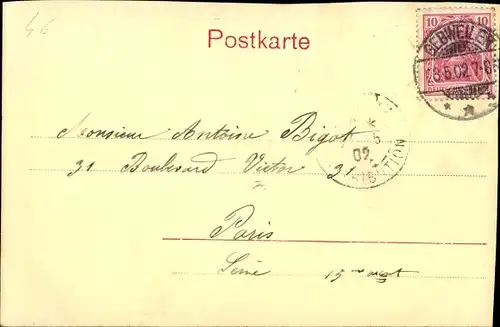 46
Postkarte
10 10
GEBWEILER
8.5.02.7-8
Monsieur Antoine Bigot
02.
31 Boulevard Victor 31
Paris
Seine 15me